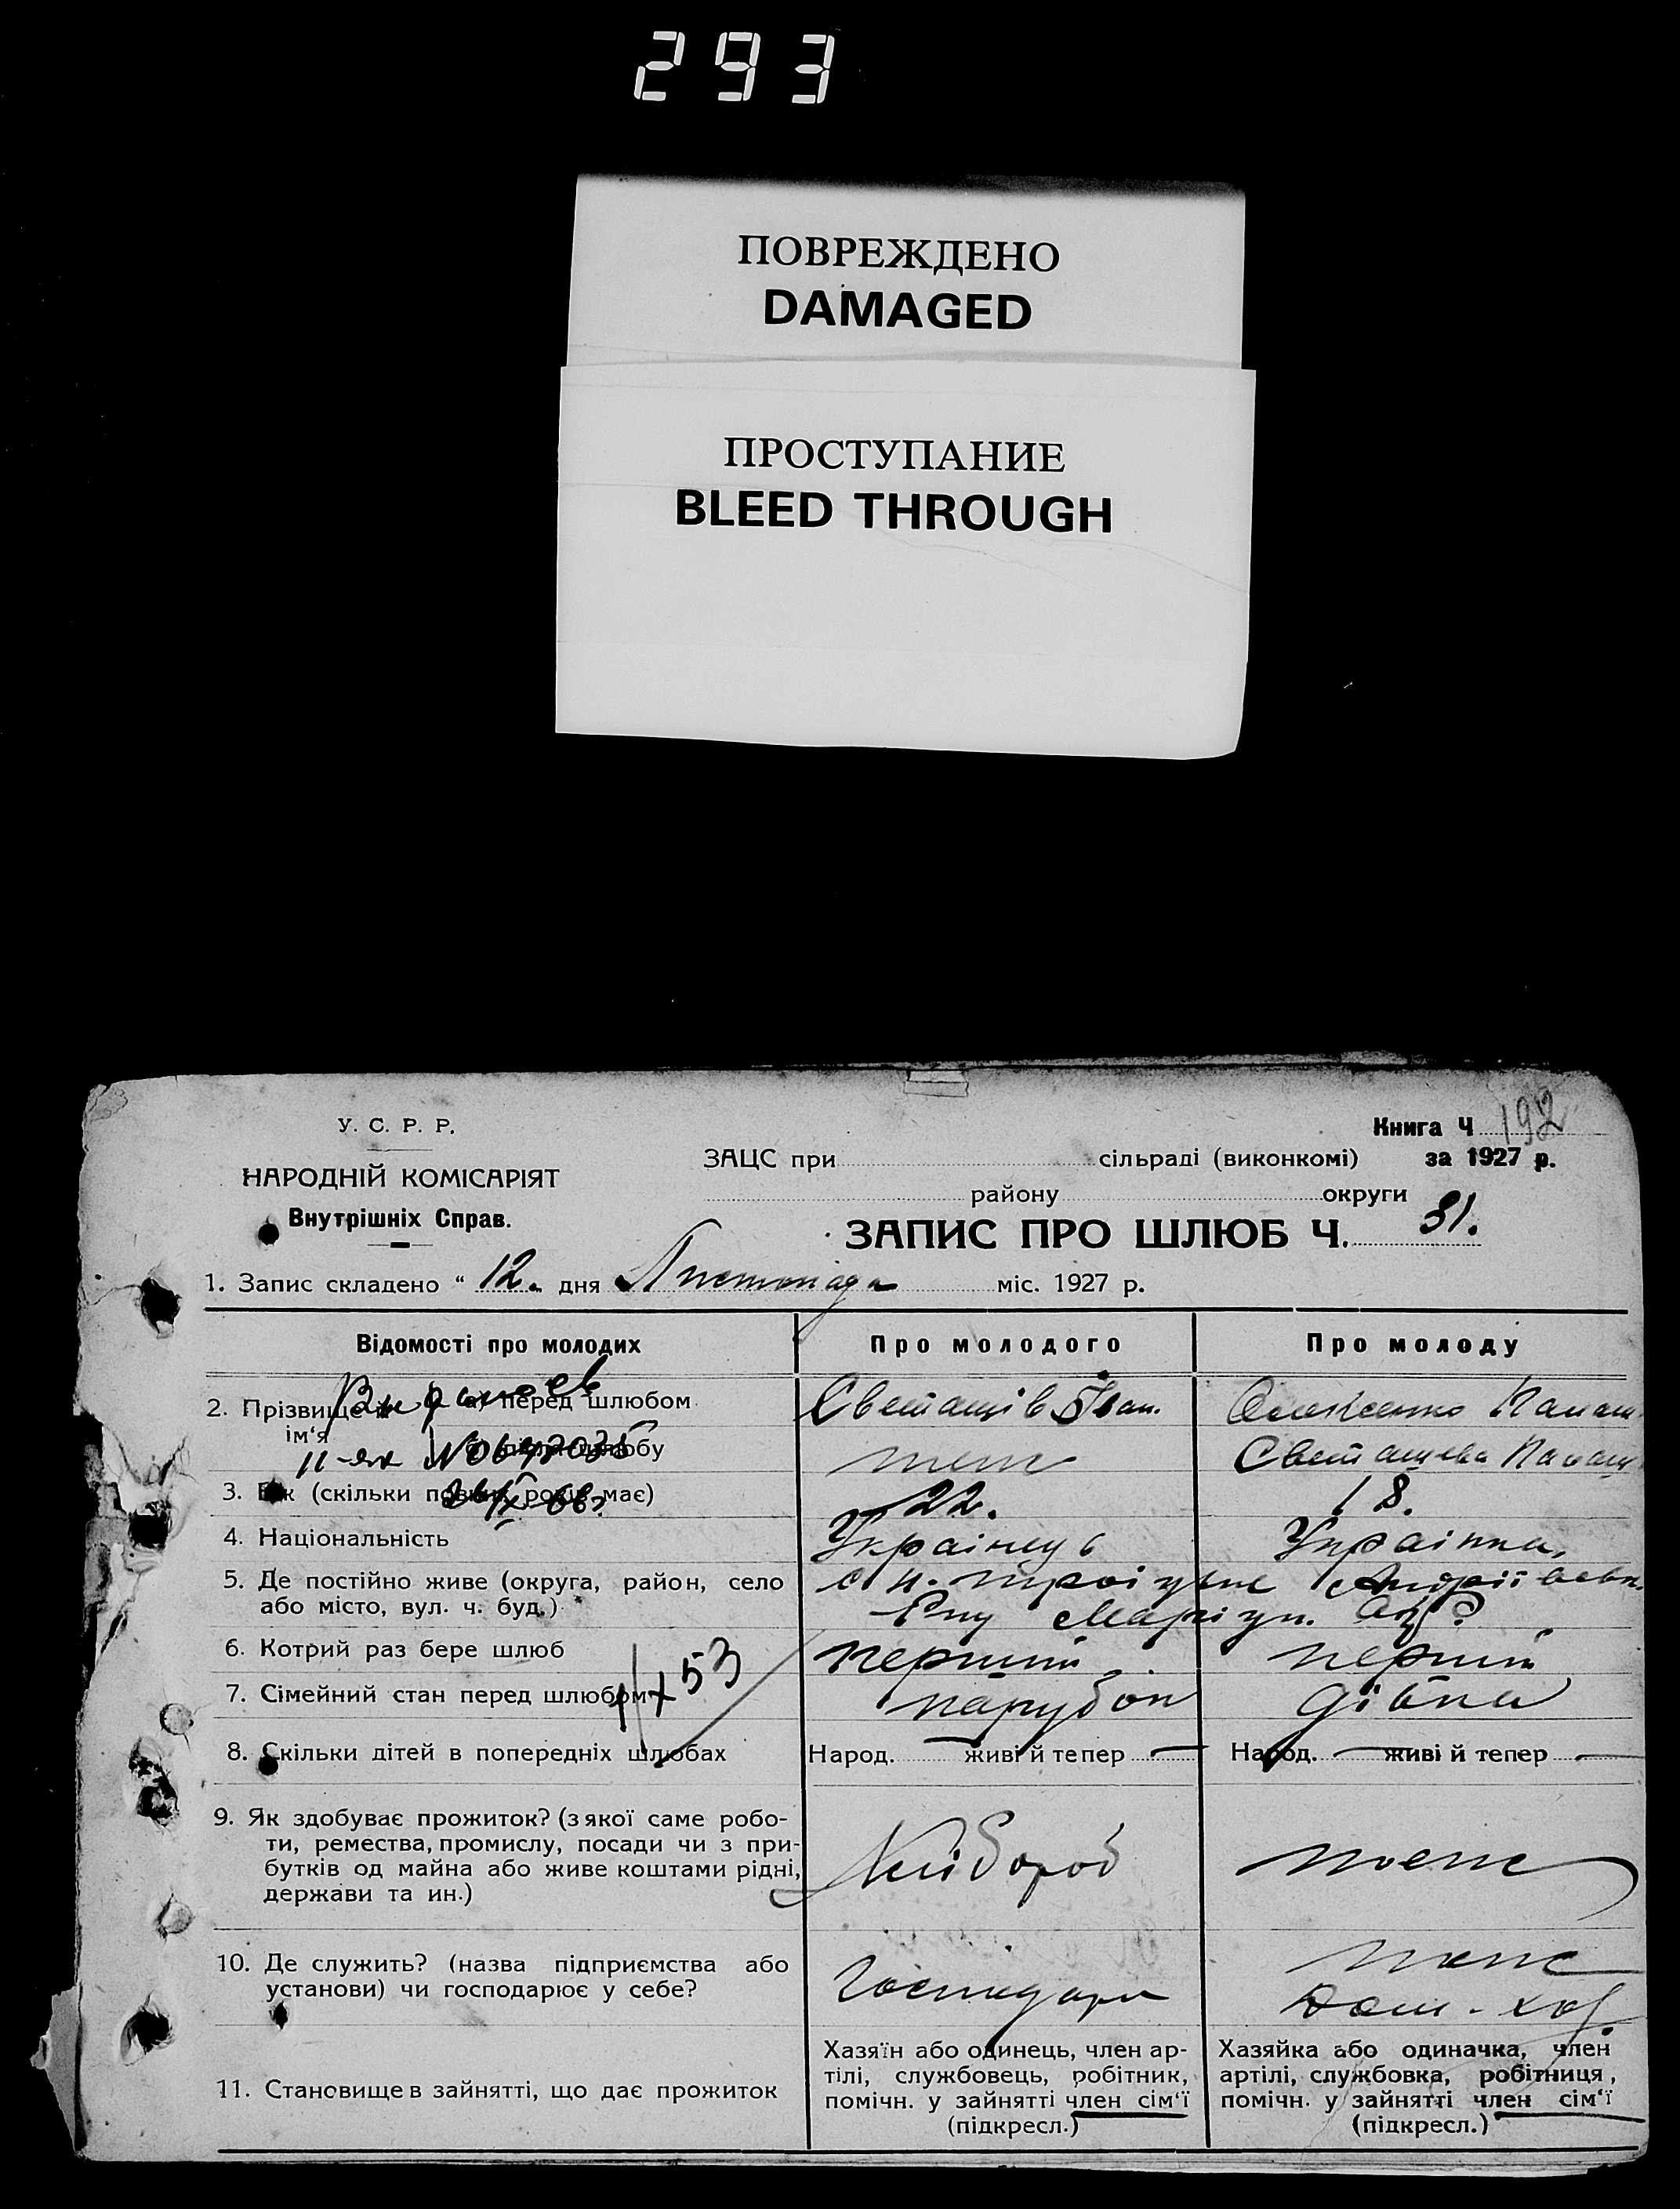 293
ПОВРЕЖДЕНО
DAMAGED
ПРОСТУПАНИЕ
BLEED THROUGH
У. С. Р. Р.
НАРОДНІЙ КОМІСАРІЯТ
Внутрішніх Справ.
Книга Ч 192
ЗАЦС при сільраді (виконкомі) за 1927 р.
району округи
ЗАПИС ПРО ШЛЮБ Ч. 31.
1. Запис складено “ 12. дня Листопада міс. 1927 р.
Відомості про молодих Про молодого Про молоду
2. Прізвище й ім‘я
а) перед шлюбом
шлюбу
26/IX-66г
теж
3. Вік (скільки повних років має) 22. 18.
4. Національність Українець Українка,
5. Де постійно живе (округа, район, село
або місто, вул. ч. буд.)
6. Котрий раз бере шлюб перший перший
7. Сімейний стан перед шлюбом парубок дівка
53
8. Скільки дітей в попередніх шлюбах Народ. — живі й тепер — Народ. — живі й тепер —
9. Як здобуває прожиток? (з якої саме робо-
ти, ремества, промислу, посади чи з при-
бутків од майна або живе коштами рідні,
держави та ин.)
Хлібороб
тоже
10. Де служить? (назва підприємства або
установи) чи господарює у себе?
11. Становище в зайнятті, що дає прожиток
Хазяїн або одинець, член ар-
тілі, службовець, робітник,
помічн. у зайнятті член сім‘ї
(підкресл.)
Хазяйка або одиначка, член
артілі, службовка, робітниця,
помічн. у зайнятті член сім‘ї
(підкресл.)